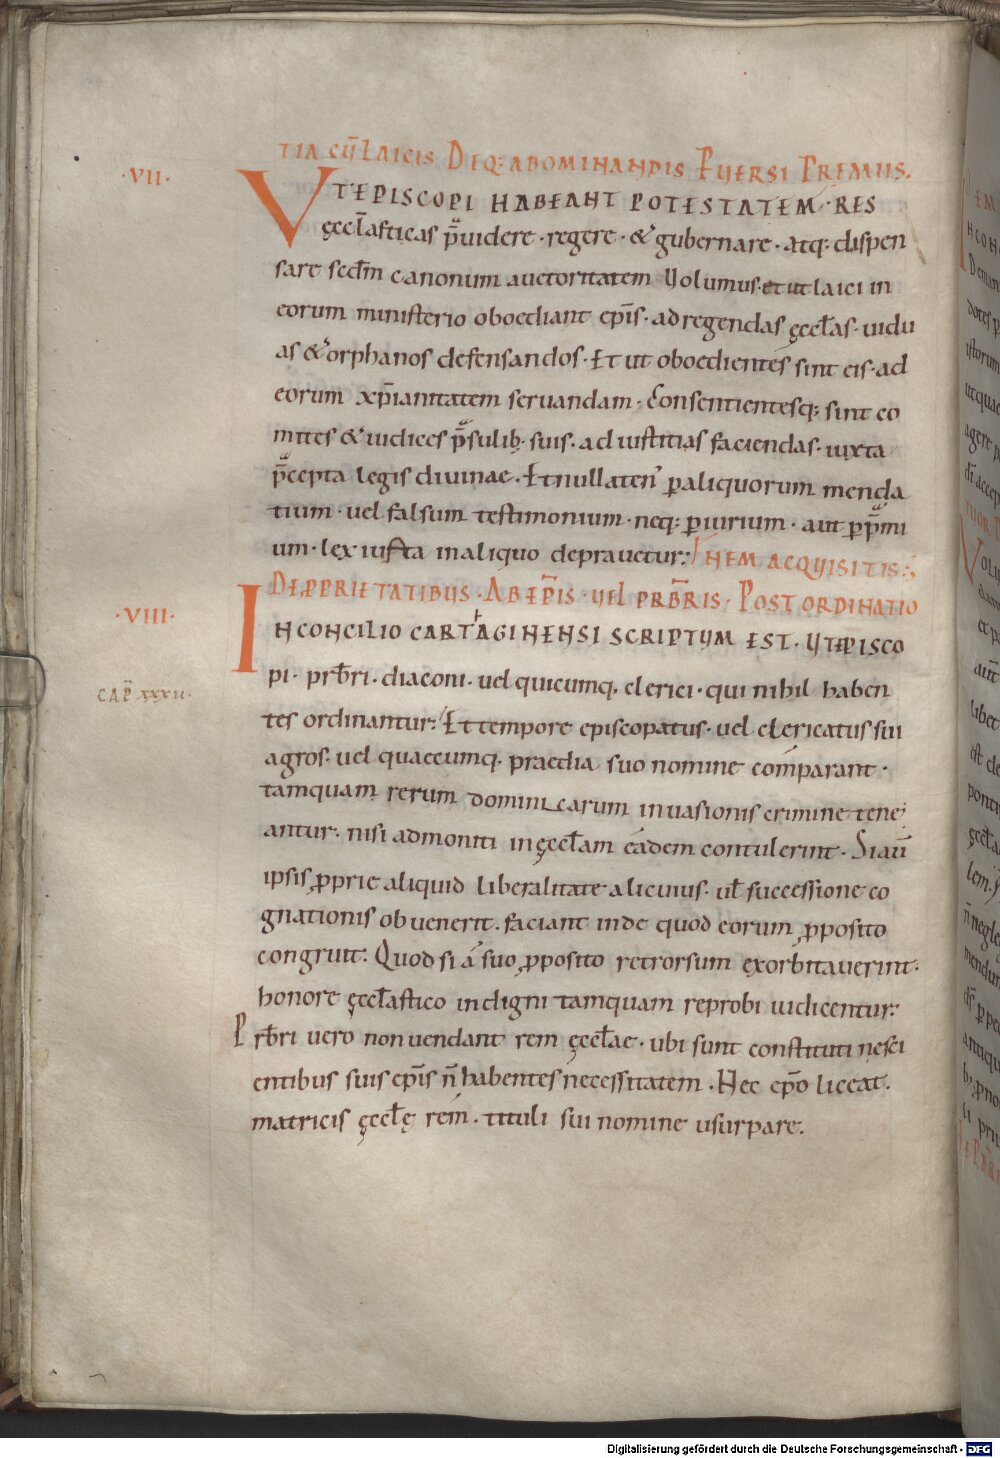 TIA CŪ LAICIS DEQ: ABOMINANDIS PYERSI TREMIIS.
·VII·
VT EPISCOPI HABEANT POTESTATEM· RES
ęccl̄asticas p̄uidere · regere · & gubernare · atq: dispen
sare scd̄m canonum auctoritatem Volumus. et ut laici in
eorum ministerio oboediant ep̄is · ad regendas ęccl̄as · uidu
as & orphanos defensandos · Et ut oboedientes sint eis · ad
eorum xp̄ianitatem seruandam · Consentientesq; sint co
mites & iudices p̄sulib; suis · ad iustitias faciendas · iuxta
p̄cepta legis diuinae · Et nullaten' ꝑ aliquorum menda
tium · uel falsum testimonium · neq: ꝑiurium · aut ꝓp̄mi
um · lex iusta in aliquo deprauetur:
NEM ACQVISITIS:;
·VIII·
DE ꝓPRIETATIBUS · AB EP̄IS · VEL PRB̄RIS · POST ORDINATIO
IN CONCILIO CARTAGINENSI SCRIPTVM EST · VT EPISCO
CAP̄ xxxii·
pi · prb̄ri · diaconi · uel quicumq; clerici · qui nihil haben
tes ordinantur: Et tempore episcopatus · uel clericatus sui
agros · uel quaecumq; praedia suo nomine comparant ·
tamquam rerum dominicarum inuasionis crimine tene
antur · nisi admoniti in ęccl̄am eadem contulerint · Si aū
ipsis ꝓprie aliquid liberalitate alicuius · ul̄ successione co
gnationis obuenerit · faciant inde quod eorum ꝓposito
congruit: Quod si a suo ꝓposito retrorsum exorbitauerint·
honore ęccl̄astico indigni tamquam reprobi iudicentur:
Prb̄ri uero non uendant rem ęccl̄ae · ubi sunt constituti nesci
entibus suis ep̄is n̄ habentes necessitatem · Nec ep̄o liceat ·
matricis ęccl̄ę rem · tituli sui nomine usurpare.
Digitalisierung gefördert durch die Deutsche Forschungsgemeinschaft - DFG